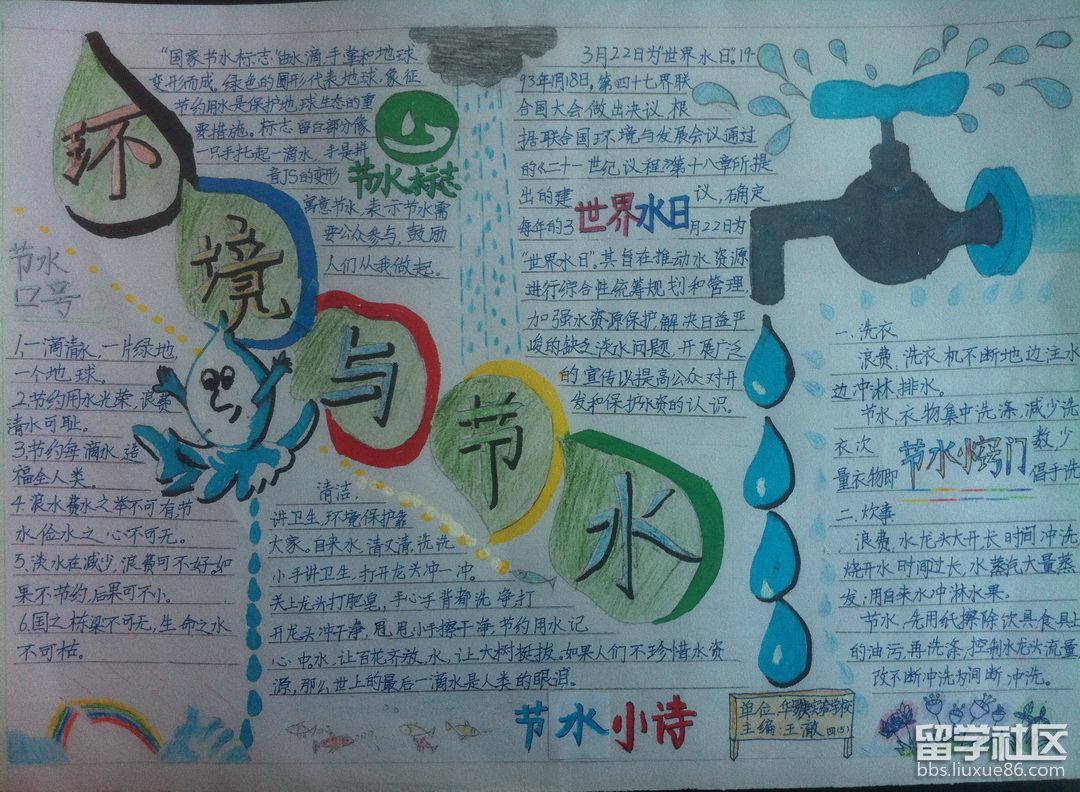 环
境
与
节
水
“国家节水标志”由水滴,手掌和地球
变形而成。绿色的圆形代表地球,象征
节约用水是保护地球生态的重
要措施。标志留白部分像
一只手托起一滴水,手是拼
音JS的变形
寓意节水,表示节水需
要公众参与,鼓励
人们从我做起。
节水标志
3月22日为“世界水日”。19
93年1月18日,第四十七界联
合国大会做出决议,根
据联合国环境与发展会议通过
的《二十一世纪议程》第十八章所提
出的建议,确定
每年的3月22日为
“世界水日”。其旨在推动水资源
进行综合性统筹规划和管理,
加强水资源保护,解决日益严
峻的缺乏淡水问题,开展广泛
的宣传以提高公众对开
发和保护水资的认识。
世界水日
节水
口号
1,一滴清水,一片绿地,
一个地球。
2.节约用水光荣,浪费
清水可耻。
3.节约每滴水,造
福全人类。
4.浪水费水之举不可有节
水俭水之心不可无。
5.淡水在减少,浪费可不好。如
果不节约,后果可不小。
6.国之栋梁不可无,生命之水
不可枯。
清洁,
讲卫生,环境保护靠
大家。自来水,清又清,洗洗
小手讲卫生,打开龙头冲一冲。
关上龙头打肥皂,手心手背都洗净,打
开龙头冲干净,甩甩小手擦干净,节约用水记
心中。水,让百花齐放,水,让大树挺拔。如果人们不珍惜水资
源,那么世上的最后一滴水是人类的眼泪。
节水小诗
一.洗衣
浪费,洗衣机不断地边注水
边冲淋,排水。
节水,衣物集中洗涤,减少洗
衣次数少
量衣物即倡手洗
节水小窍门
二.炊事
浪费,水龙头大开,长时间冲洗
烧开水时间过长,水蒸汽大量蒸
发;用自来水冲淋水果。
节水,先用纸擦除饮具食具上
的油污,再洗涤,控制水龙头流量,
改不断冲洗为间断冲洗。
单位:实验学校
主编:王澈 四(5)
留学社区
bbs.liuxue86.com